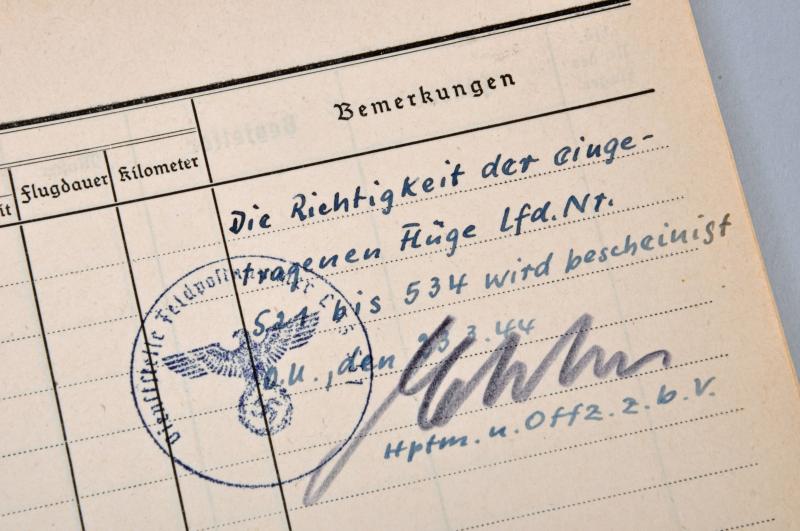 Bemerkungen
Flugdauer Kilometer
Die Richtigkeit der einge-
tragenen Flüge Lfd. Nr.
521 bis 534 wird bescheinigt
O.U., den 23.3.44
Hptm. u. Offz. z. b. V.
Dienststelle Feldpostnummer